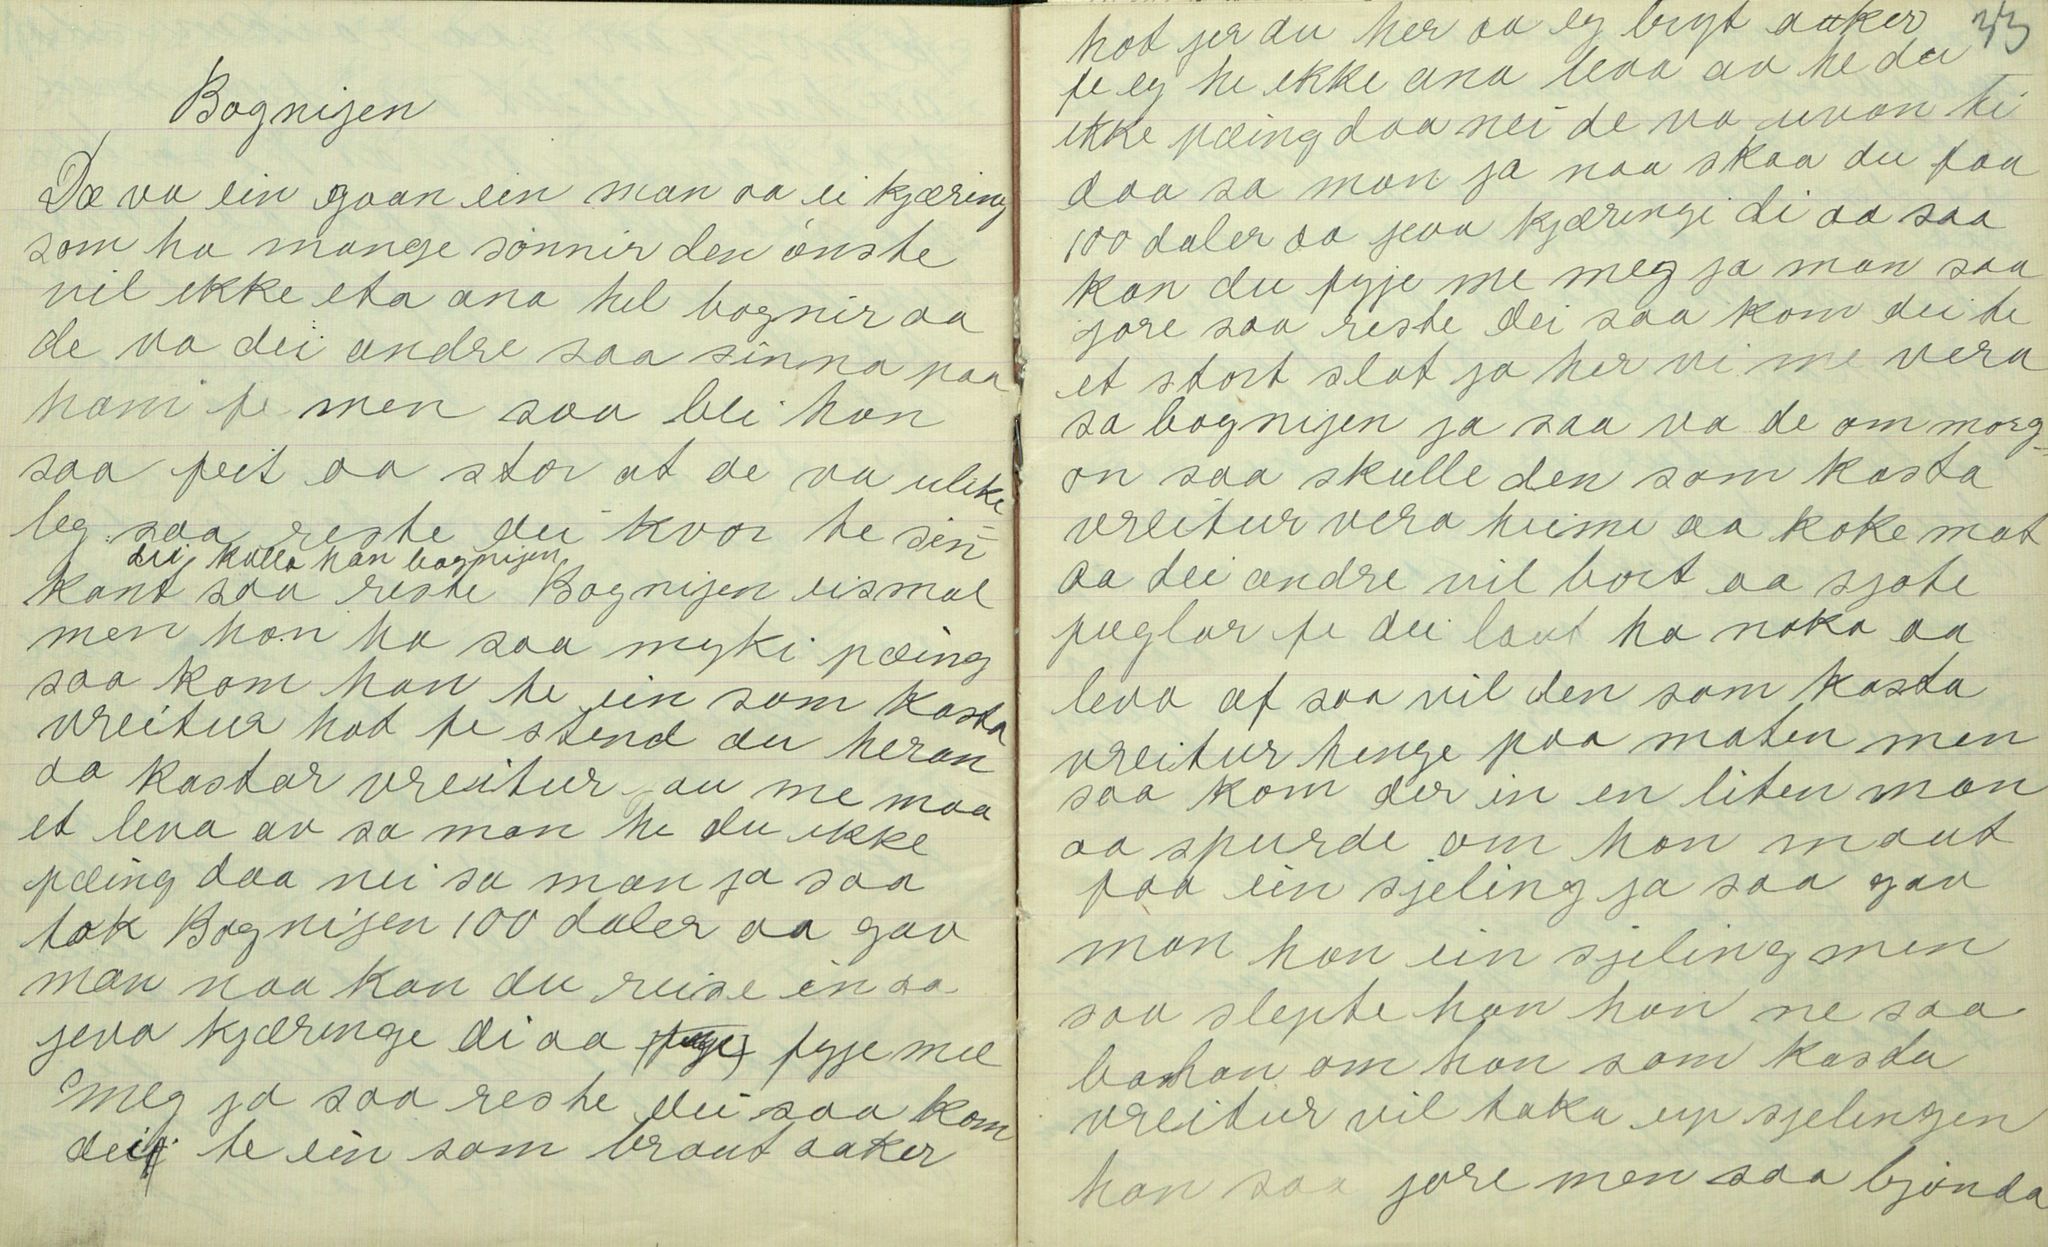 Bognijen
Dæ va ein gaan ein man aa ei kjæring
som ha mange sönnir den önste
vil ikke eta ana hel bognir aa
de va dei andre saa sinna paa
hani fe men saa blei han
saa feit aa stor at de va ulike
leg saa reste dei kvor te sin
dei kalla han bognijen
kant saa reste Bognijen eismal
men han ha saa myki pæing
saa kom han te ein som kasta
vreitur hot fe stend du heran
aa kastar vreitur au me maa
et leva av sa man he du ikke
pæing daa nei sa man ja saa
tok Bognijen 100 daler aa gav
man naa kan du reise in aa
jeva kjæringe di aa fyje mee
meg ja saa reste dei saa kom
dei te ein som braut aaker
33
hot jer du her aa eg bryt aaker
fe eg he ikke ana leva av he du
ikke pæing daa nei de va uvan ti
daa sa man ja naa skaa du faa
100 daler aa jeva kjæringi di aa saa
kan du fyje me meg ja man saa
jore saa reste dei saa kom dei te
et stort slot ja her vi me vera
sa bognijen ja saa va de om morg-
on saa skulle den som kasta
vreitur vera heime aa koke mat
aa dei andre vil bort aa sjote
fuglar fe dei laut ha noko aa
leva af saa vil den som kasta
vreitur henge paa maten men
saa kom der in en liten man
aa spurde om han maut
faa ein sjeling ja saa gav
man han ein sjeling men
saa slepte han han ne saa
ba han om han som kasta
vreitur vil taka up sjelingen
han saa jore men saa bjönda